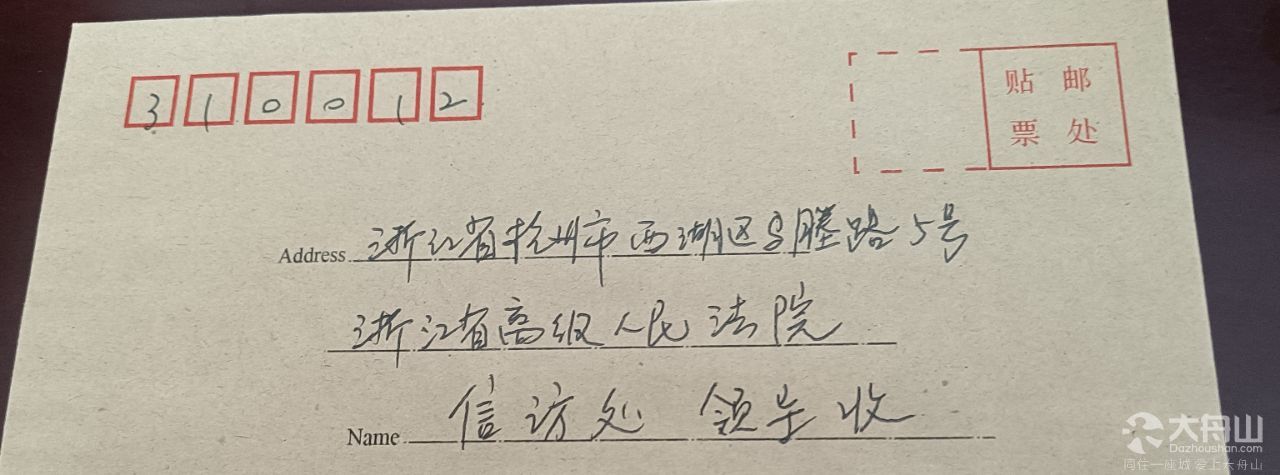 310012
贴 邮
票 处
Address 浙江省杭州市西湖区马塍路5号
浙江省高级人民法院
Name 信访处 领导收
大舟山
Dazhoushan.com
同在一座城 爱上大舟山